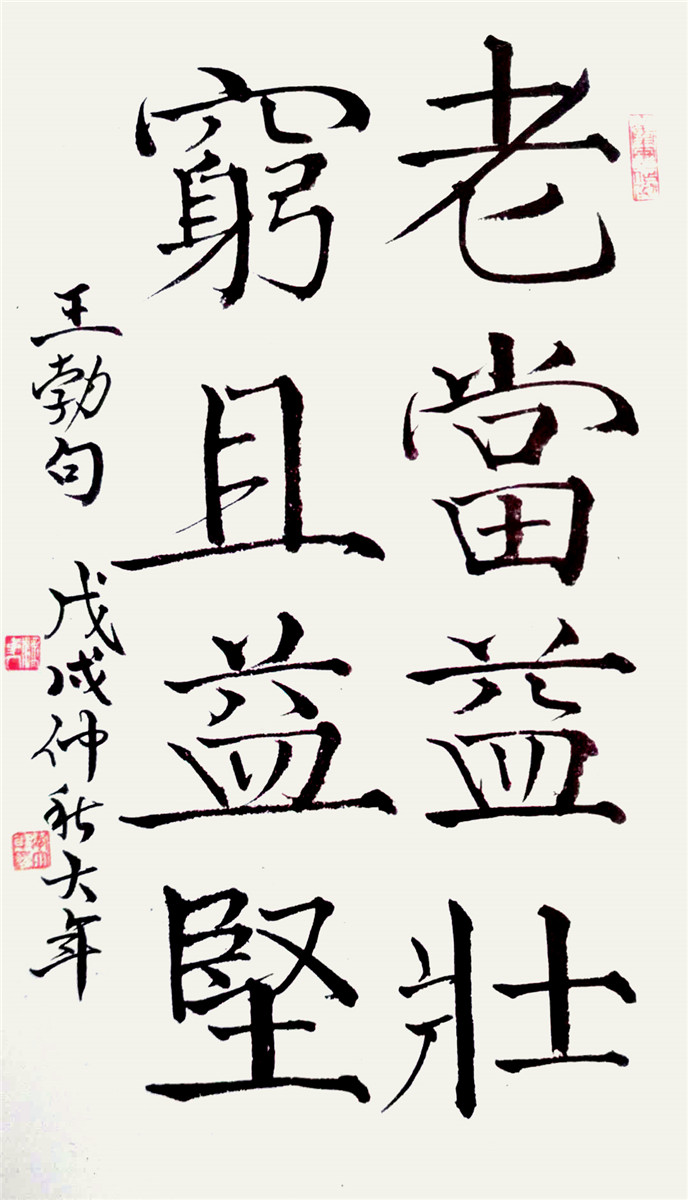 老當益壯
窮且益堅
王勃句 戊戌仲秋大年